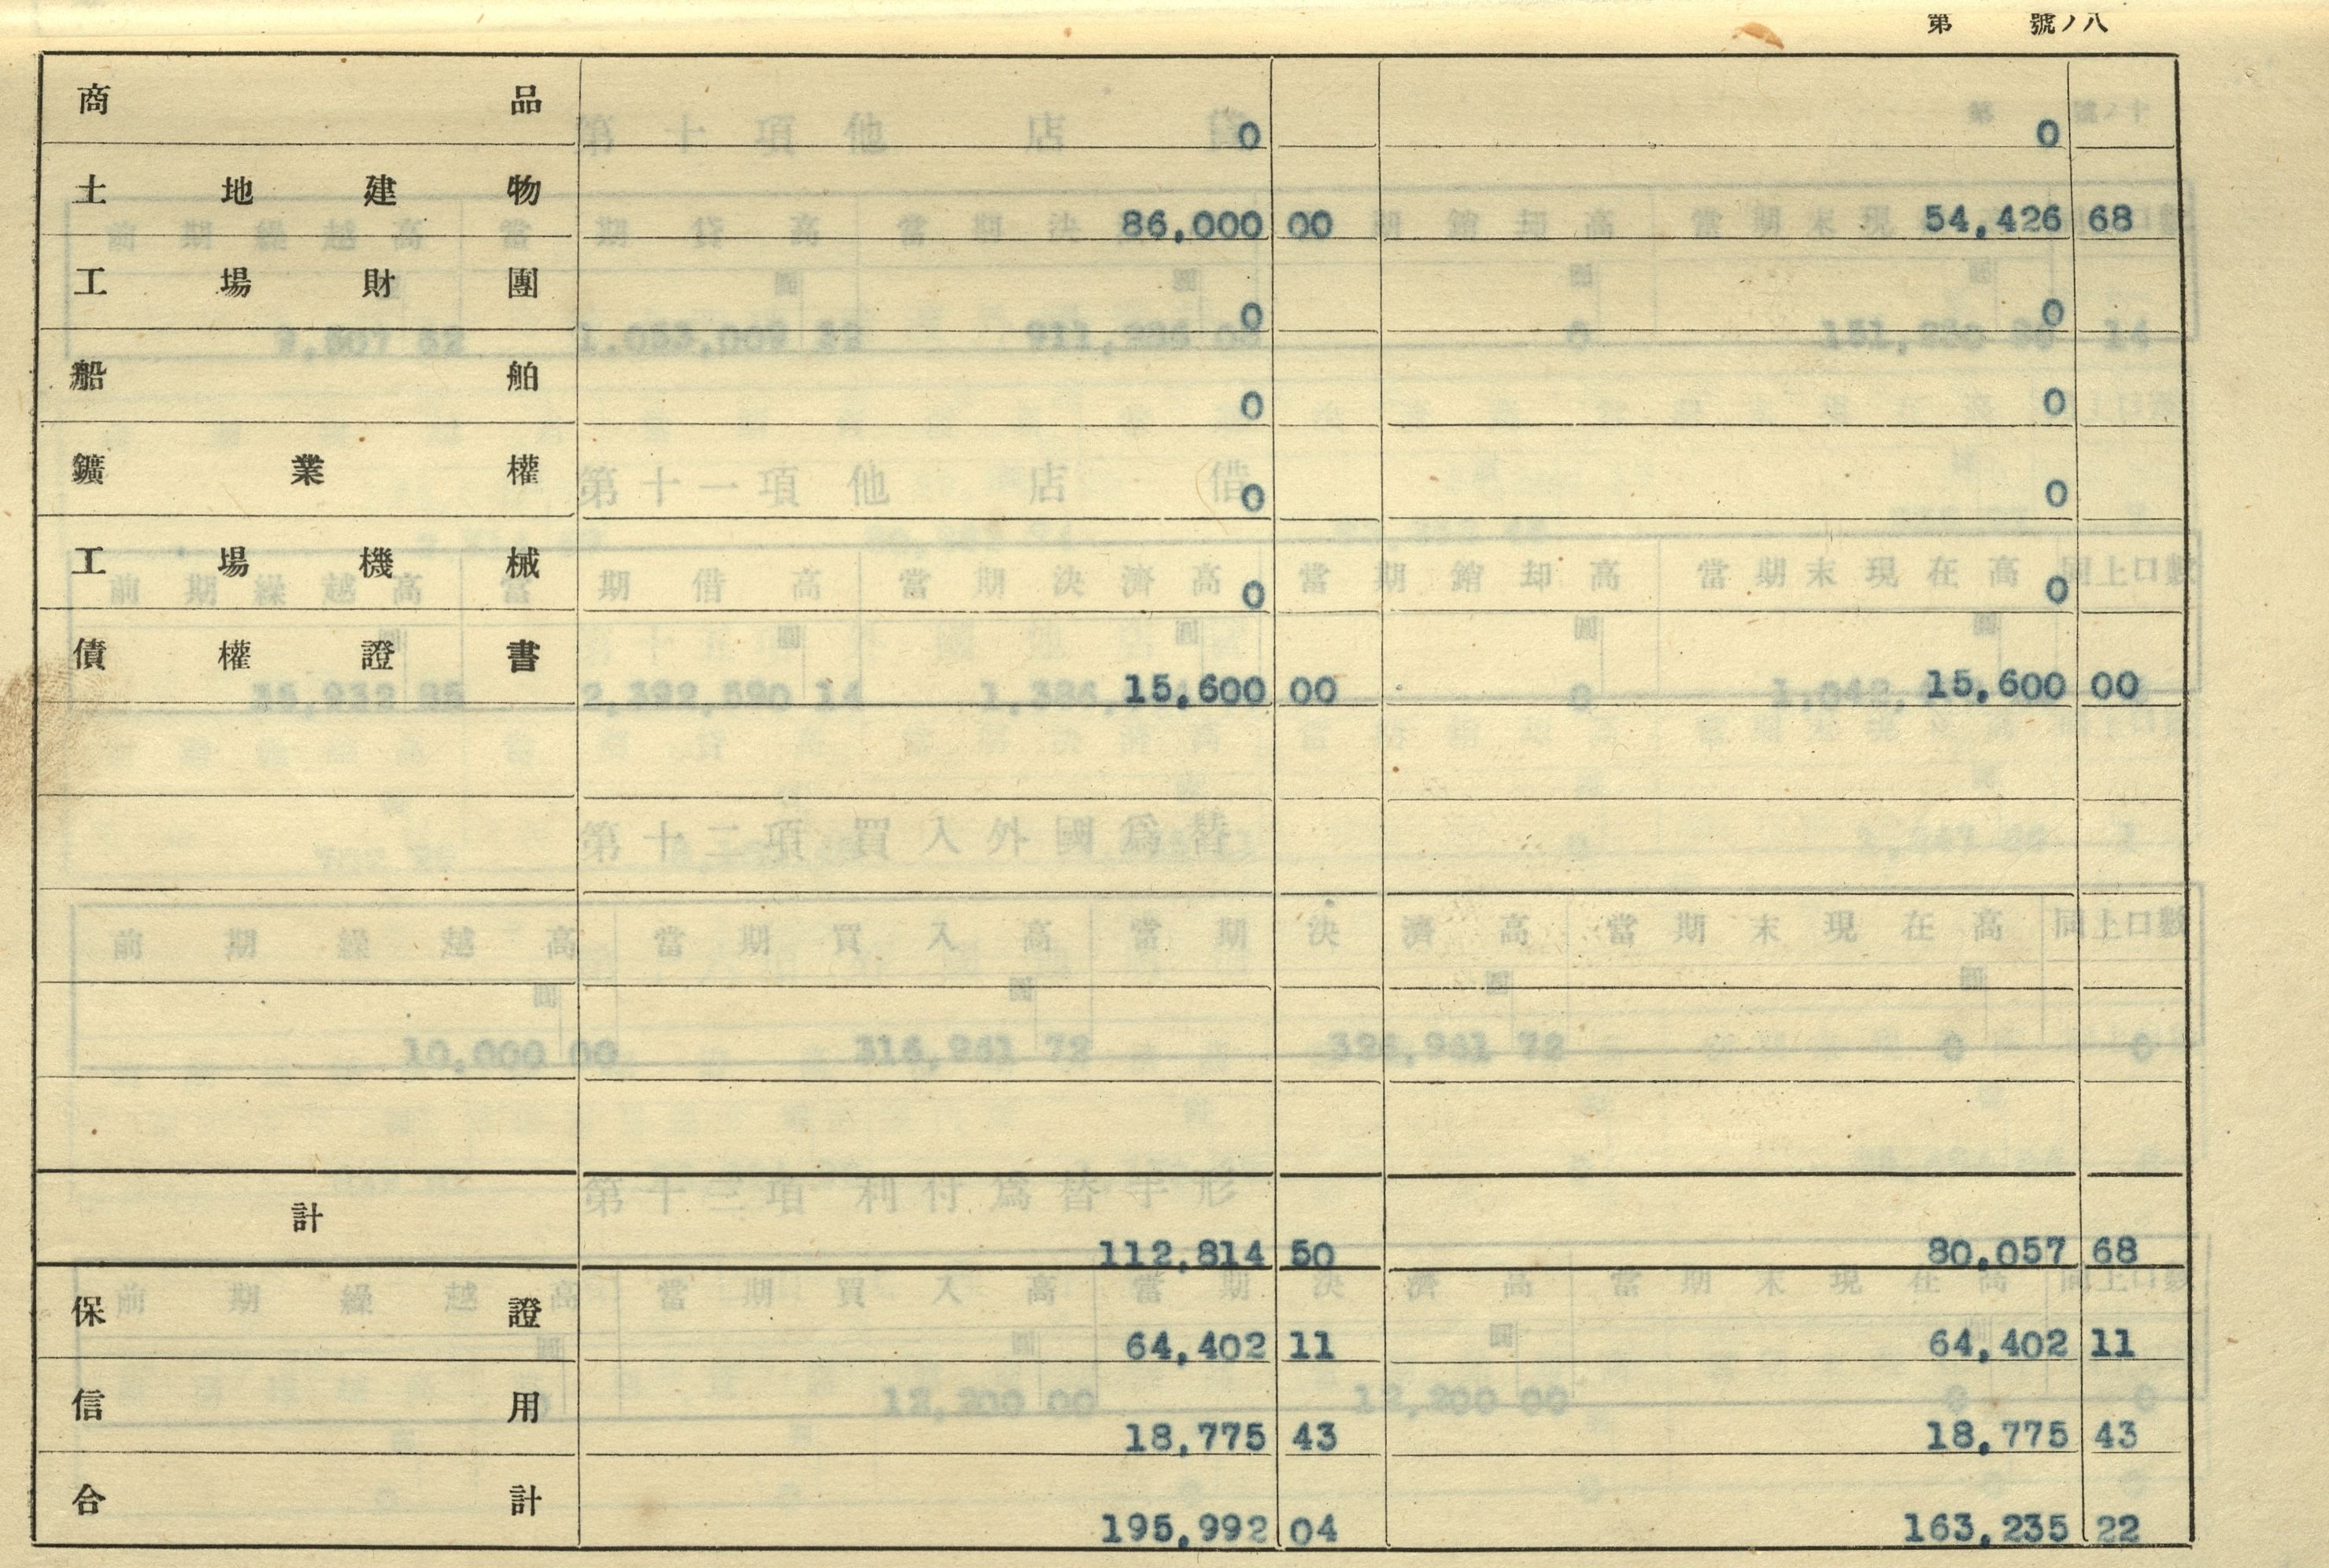 第 號ノ八
商品 0 0
土地建物 86,000 00 54,426 68
工場財團 0 0
船舶 0 0
鑛業權 0 0
工場機械 0 0
債權證書 15,600 00 15,600 00
計 112,814 50 80,057 68
保證 64,402 11 64,402 11
信用 18,775 43 18,775 43
合計 195,992 04 163,235 22